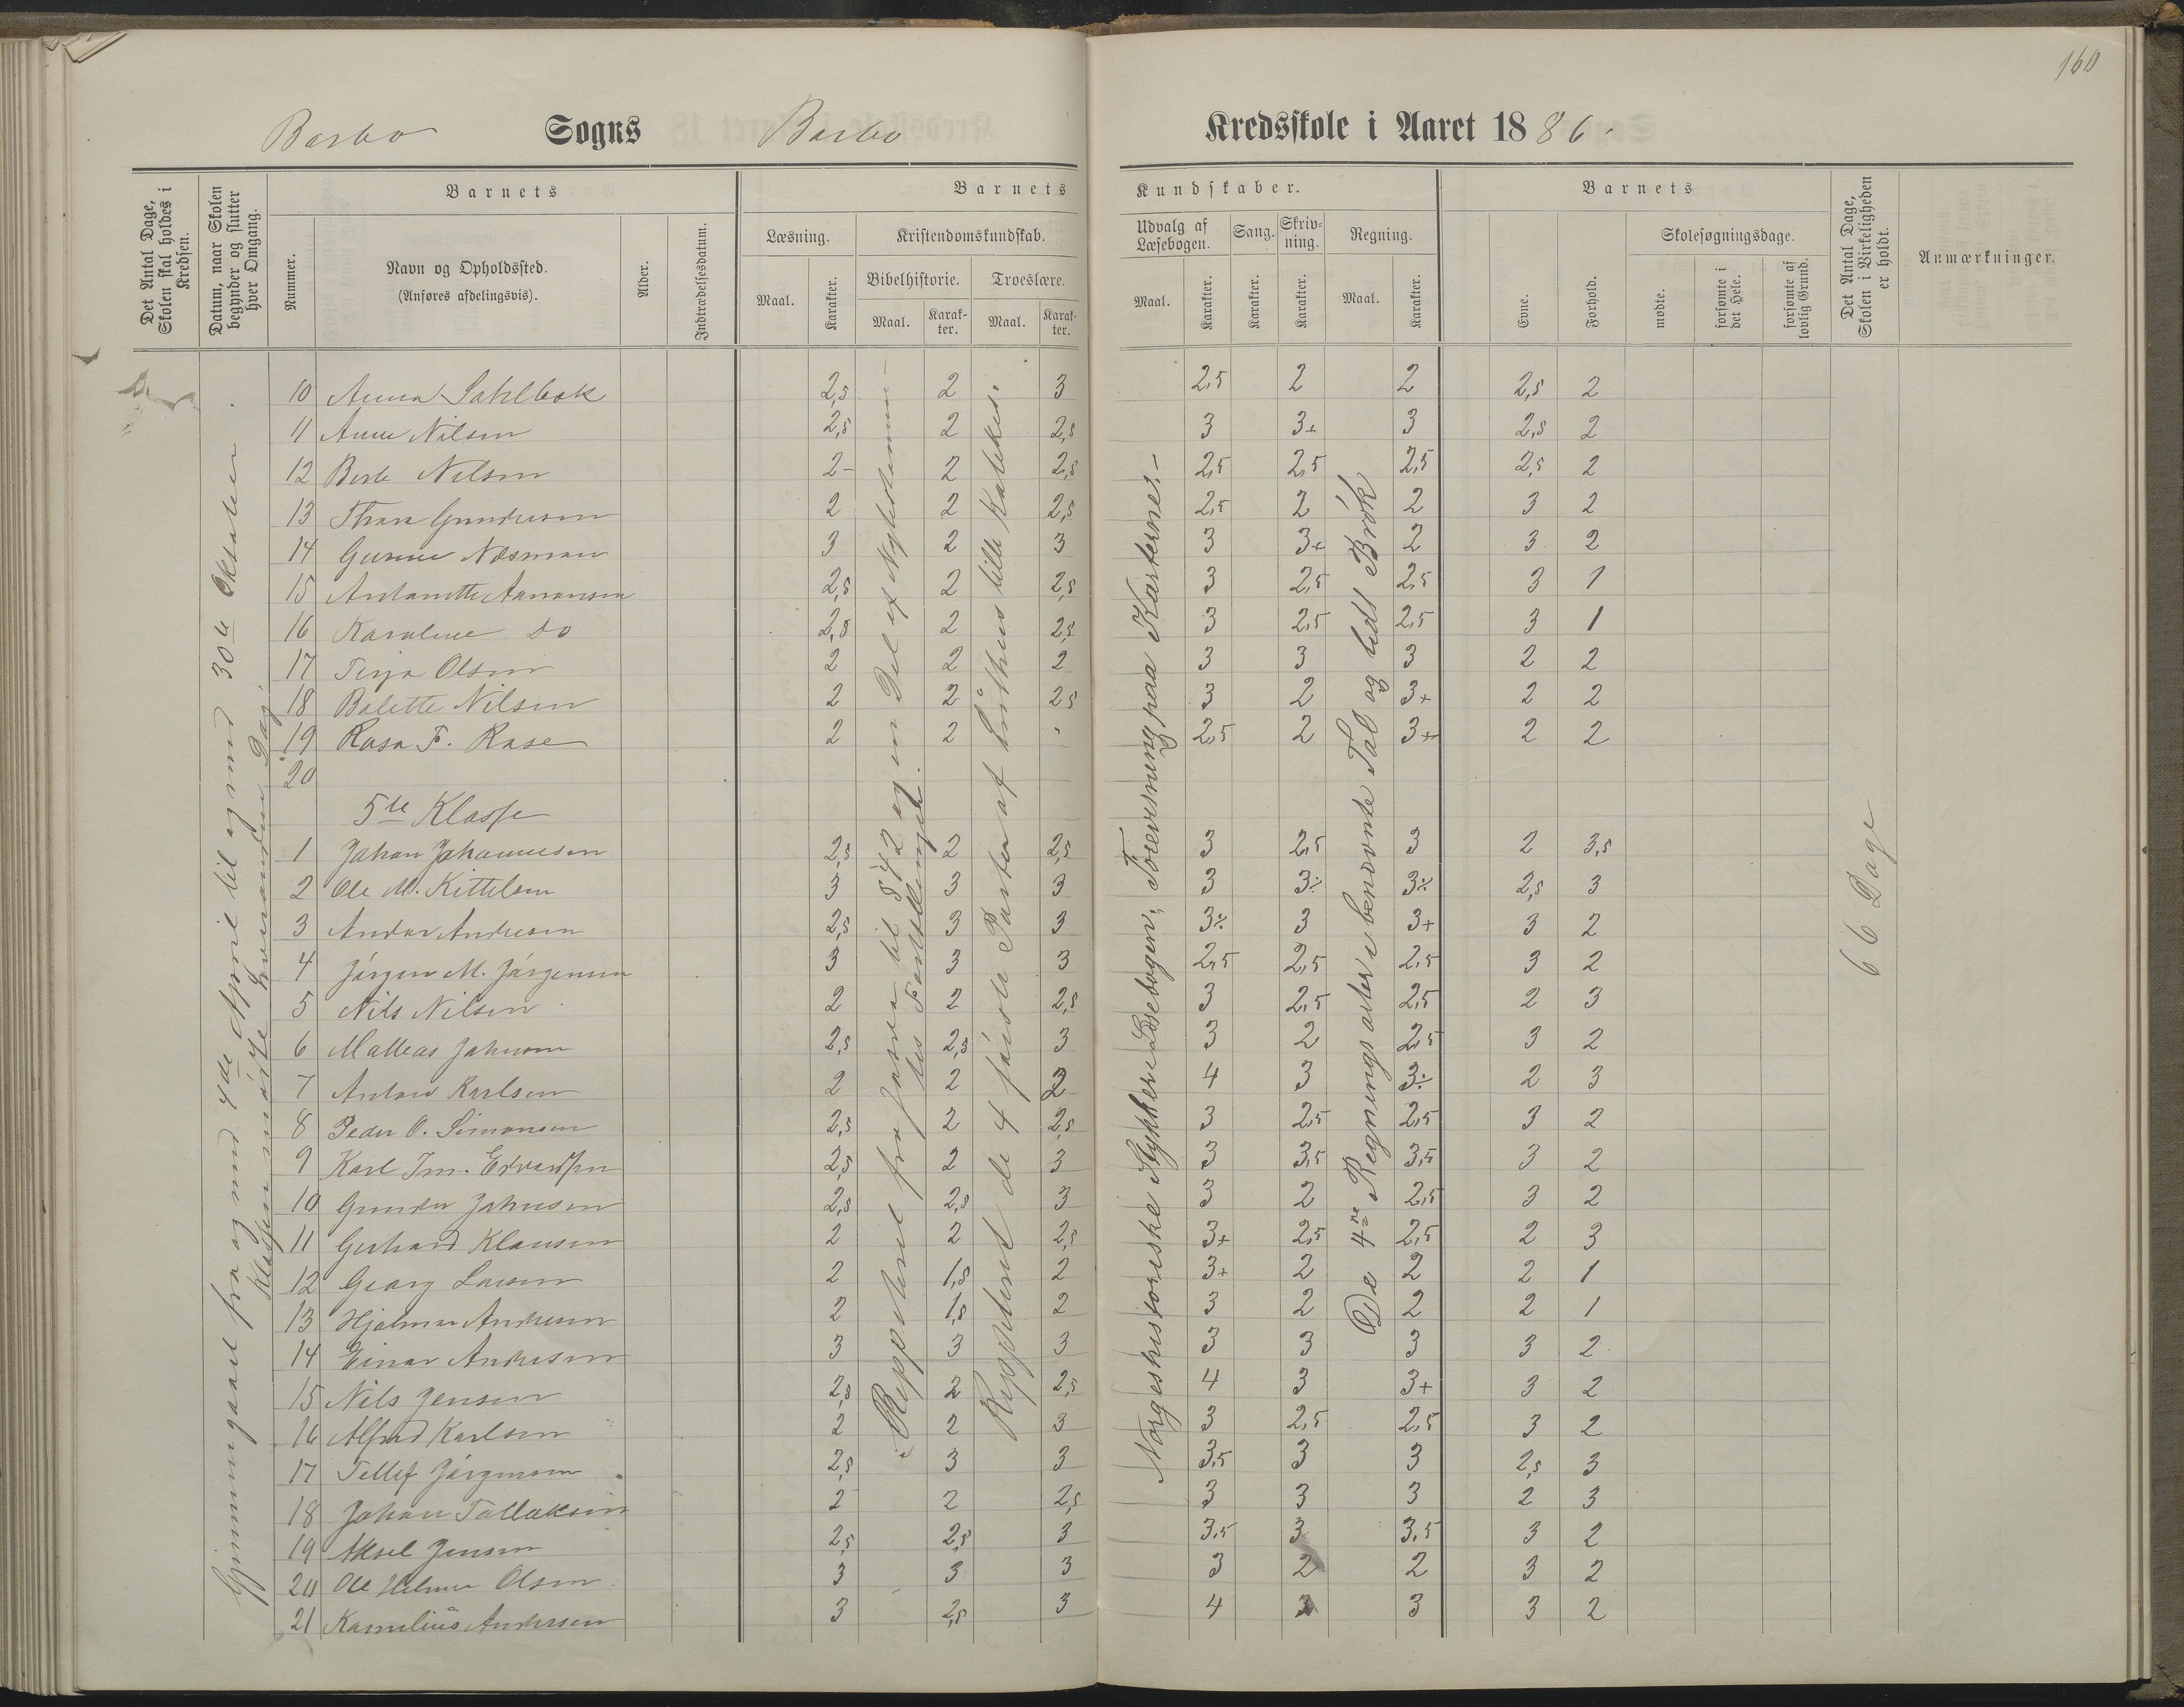 160
Barbo Sogns Barbo Kredsskole i Aaret 1886.
Det Antal Dage, Skolen skal holdes i Kredsen.
Datum, naar Skolen begynder og slutter hver Omgang.
Barnets
Nummer.
Navn og Opholdssted.
(Anføres afdelingsvis).
Alder.
Indtrædelsesdatum.
Barnets Kundskaber.
Læsning.
Maal.
Karakter.
Kristendomskundskab.
Bibelhistorie.
Maal.
Karakter.
Troeslære.
Maal.
Karakter.
Udvalg af Læsebogen.
Maal.
Karakter.
Sang.
Karakter.
Skrivning.
Karakter.
Regning.
Maal.
Karakter.
Barnets
Evne.
Forhold.
Skolesøgningsdage.
mødte.
forsømte i det Hele.
forsømte af lovlig Grund.
Det Antal Dage, Skolen i Virkeligheden er holdt.
Anmærkninger.
Gjennemgaaet fra og med 4de April til og med 30te Oktober.
Klassen hver anden Dag.
Reppeteret fra til § 42 og en Del af
Reppeteret de 4 første Parter af Luthers lille Katekes.
Norgeshistoriske Stykker i Læsebogen; Foreviisning paa Karterne.
De 4re Regningsarter i benævnte Tal og lidt Brøk
66 Dage
10 Anna Sahlbok 2,5 2 3 2,5 2 2 2,5 2
11 Anne Nilsen 2,5 2 2,5 3 3+ 3 2,5 2
12 Berte Nilsen 2- 2 2,5 2,5 2,5 2,5 2,5 2
13 Thora Gundersen 2 2 2,5 2,5 2 2 3 2
14 Gunne Næsman 3 2 3 3 3+ 2 3 2
15 Antonette Aanonsen 2,5 2 2,5 3 2,5 2,5 3 1
16 Karoline Do 2,5 2 2,5 3 2,5 2,5 3 1
17 Terja Olsen 2 2 2 3 3 3 2 2
18 Bolette Nilsen 2 2 2,5 3 2 3+ 2 2
19 Rosa F. Rase 2 2 2,5 2 3+ 2 2
20
5te Klasse
1 Johan Johannesen 2,5 2 2,5 3 2,5 3 2 3,5
2 Ole M. Kittelsen 3 3 3 3 3÷ 3÷ 2,5 3
3 Andor Andresen 2,5 3 3 3÷ 3 3+ 3 2
4 Jørgen M. Jørgensen 3 3 3 2,5 2,5 2,5 3 2
5 Nils Nilsen 2 2 2,5 3 2,5 2,5 2 3
6 Matteas Johnsen 2,5 2,5 3 3 2 2,5 3 2
7 Anton Karlsen 2 2 2 4 3 3÷ 2 3
8 Peder O. Simonsen 2,5 2 2,5 3 2,5 2,5 3 2
9 Karl Im. Edvardsen 2,5 2 3 3 3,5 3,5 3 2
10 Gunder Johnsen 2,5 2,5 3 3 2 2,5 3 2
11 Gerhard Klausen 2 2 2,5 3+ 2,5 2,5 2 3
12 Georg Larsen 2 1,5 2 3+ 2 2 2 1
13 Hjalmar Andresen 2 1,5 2 3 2 2 2 1
14 Einar Andresen 3 3 3 3 3 3 3 2
15 Nils Jensen 2,5 2 2,5 4 3 3+ 3 2
16 Alfred Karlsen 2 2 3 3 2,5 2,5 3 2
17 Tellef Jørgensen 2,5 3 3 3,5 3 3 2,5 3
18 Johan Tallaksen 2 2 2,5 3 3 3 2 3
19 Aksel Jensen 2,5 2,5 3 3,5 3 3,5 3 2
20 Ole Helmer Olsen 3 3 3 3 2 2 3 2
21 Kornelius Andersen 3 2,5 3 4 3 3 3 2